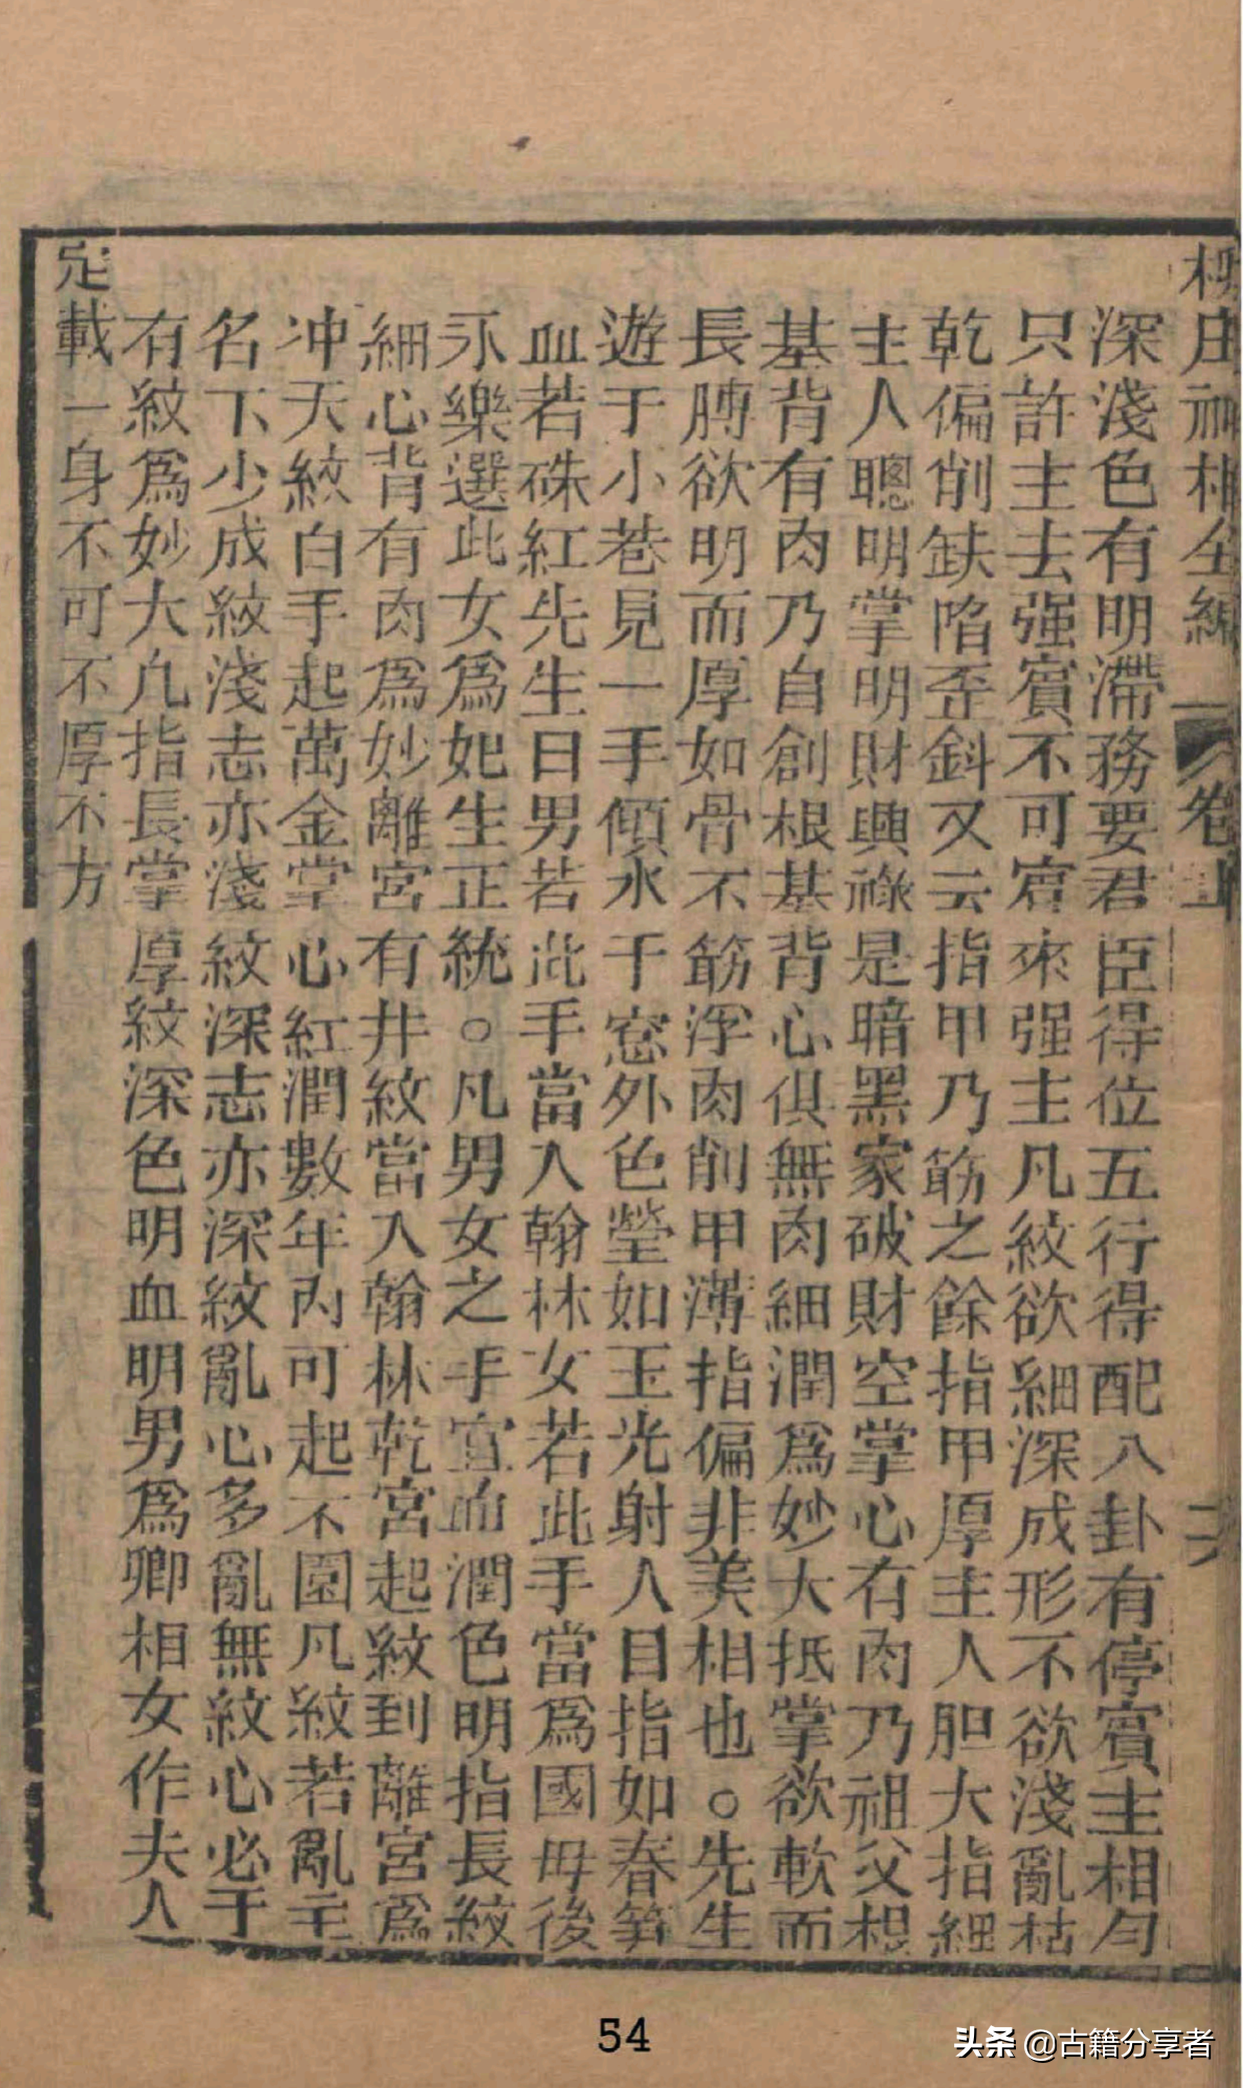 柳庄神相全編 卷上 六
深淺色有明滯務要君臣得位五行得配八卦有停賓主相勻
只許主去强賓不可賓來强主凡紋欲細深成形不欲淺亂枯
乾偏削缺陷歪斜又云指甲乃筋之餘指甲厚主人胆大指細
主人聰明掌明財興祿是暗黑家破財空掌心有肉乃祖父根
基背有肉乃自創根基背心俱無肉細潤爲妙大抵掌欲軟而
長膊欲明而厚如骨不筋浮肉削甲薄指偏非美相也○先生
遊于小巷見一手傾水于窓外色瑩如玉光射人目指如春笋
血若硃紅先生曰男若此手當入翰林女若此手當爲國母後
永樂選此女爲妃生正統○凡男女之手宜血潤色明指長紋
細心背有肉爲妙離宮有井紋當入翰林乾宮起紋到離宮爲
冲天紋白手起萬金掌心紅潤數年內可起不園凡紋若亂主
名下少成紋淺志亦淺紋深志亦深紋亂心多亂無紋心必于
有紋爲妙大凢指長掌厚紋深色明血明男爲卿相女作夫人
定載一身不可不厚不方
54
头条 @古籍分享者